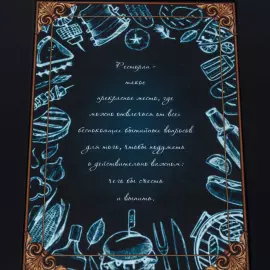 Ресторан -
такое
прекрасное место, где
можно отвлечься от всех
беспокоящих бытийных вопросов
для того, чтобы подумать
о действительно важном:
чего бы съесть
и выпить.